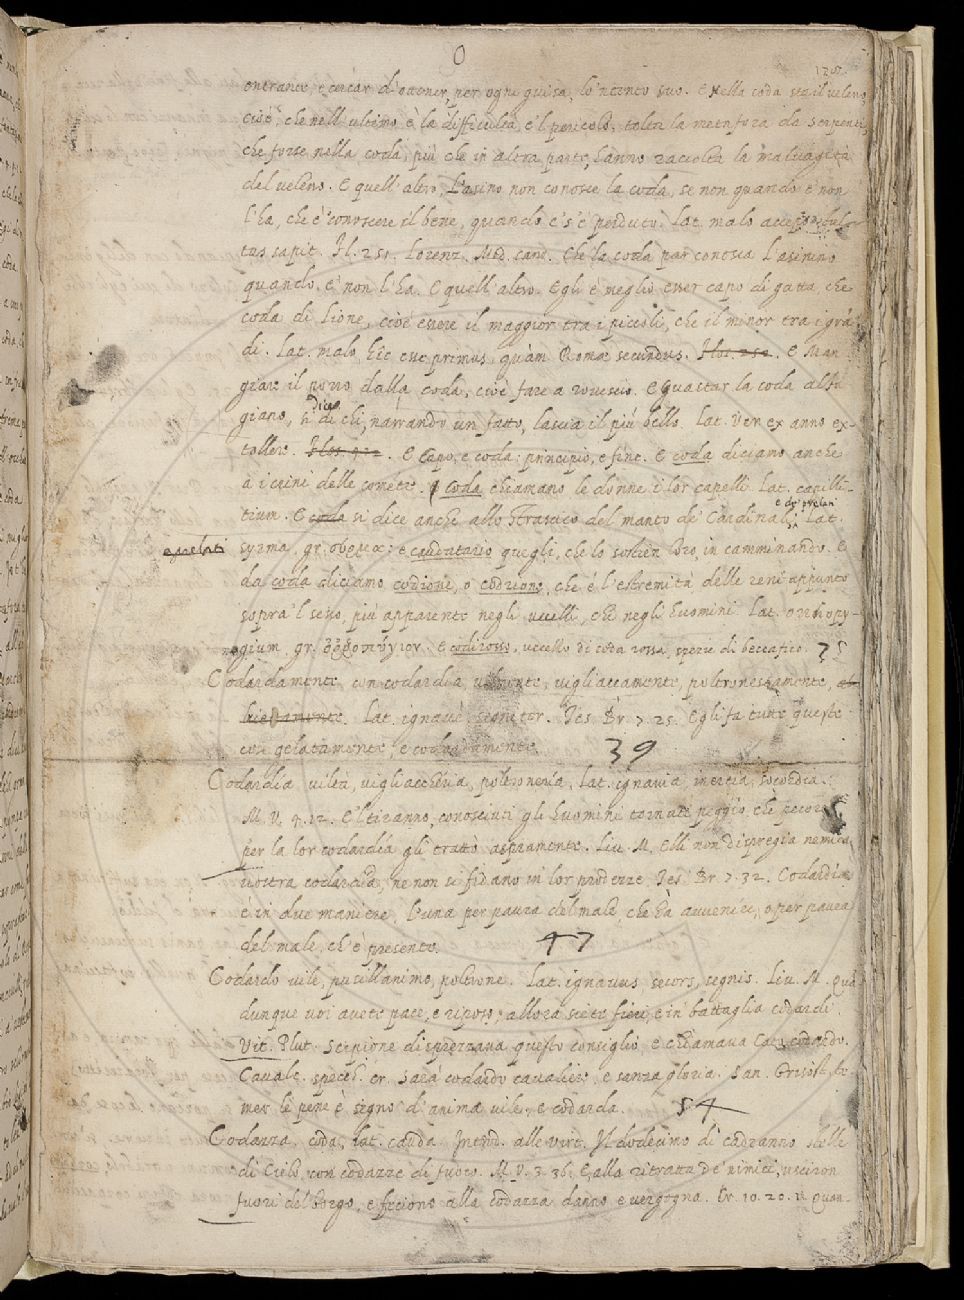 O
entrante, e cercar d'ottener, per ogni guisa, lo 'ntento suo. E Nella coda sta il veleno,
cioè, che nell'ultimo è la difficultà, e 'l pericolo. tolta la metafora da serpenti,
che forse nella coda, più che in altra parte, hanno raccolta la malvagità
del veleno. E quell'altro, L'asino non conosce la coda, se non quando e' non
l'ha, che è conoscere il bene, quando e' s'è perduto. Lat. malo accepto stul-
tus sapit. Fl. 251. Lorenz. Med. canz. Che la coda par conosca l'asinino
quando e' non l'ha. E quell'altro. Egli è meglio esser capo di gatta, che
coda di lione, cioè essere il maggior tra i piccoli, che il minor tra i gra'
di. Lat. malo hic esse primus, quàm Romae secundus. E Man
giare il porro dalla coda, cioè fare a rovescio. E Guastar la coda al fa
giano, si dice di chi, narrando un fatto, lascia il più bello. Lat. Ver ex anno ex-
tollere. E Capo, e coda: principio, e fine. E coda diciamo anche
a i crini delle comete. E Coda chiamano le donne i lor capelli. Lat. capilli-
tium. E coda si dice anche allo strascico del manto de' Cardinali, e de' prelati Lat.
e prelati
syrma, gr. σύρμα: e caudatario quegli, che lo sostien loro, in camminando. E
da coda diciamo codione, o codrione, che è l'estremità delle reni appunto
sopra 'l sesso, più apparente negli uccelli, che negli huomini. Lat. orrhopy-
gium. gr. ὀρροπύγιον. E codirosso, uccello di coda rossa, spezie di beccafico. 75
Codardamente, con codardia, vilmente, vigliaccamente, poltronescamente,
Lat. ignavè, segniter. Tes. Br. 7. 25. Egli fa tutte queste
cose gelatamente, e codardamente. 39
Codardia viltà, vigliaccheria, poltroneria, Lat. ignavia, inertia, socordia.
M. V. 4. 12. E 'l tiranno, conosciuti gli huomini tornati peggio, che pecore,
per la lor codardia gli trattò aspramente. Liv. M. Elli non dispregia nemica
vostra codardia, ne non si fidano in lor prodezze. Tes. Br. 7. 32. Codardia
è in due maniere, l'una per paura del male, che ha avvenire, o per paura
del male, ch'è presente. 47
Codardo vile, pusillanimo, poltrone. Lat. ignavus, secors, segnis. Liv. M. Qua'
dunque voi avete pace, e riposo, allora siete fieri, e in battaglia codardi.
Vit. Plut. Scipione disprezzava questo consiglio, e chiamava Cato codardo.
Cavalc. specch. cr. Sarà codardo cavaliere, e sanza gloria. San. Grisost. te
mer le pene è segno d'anima vile, e codarda. 54
Codazza, coda, lat. cauda. Introd. alle virt. Il dodecimo di caddranno stelle
di Cielo, con codazze di fuoco. M. V. 3. 36. E alla ritratta de' nimici, usciron
fuori del borgo, e feciono alla codazza danno e vergogna. Cr. 10. 20. 2. Quan-